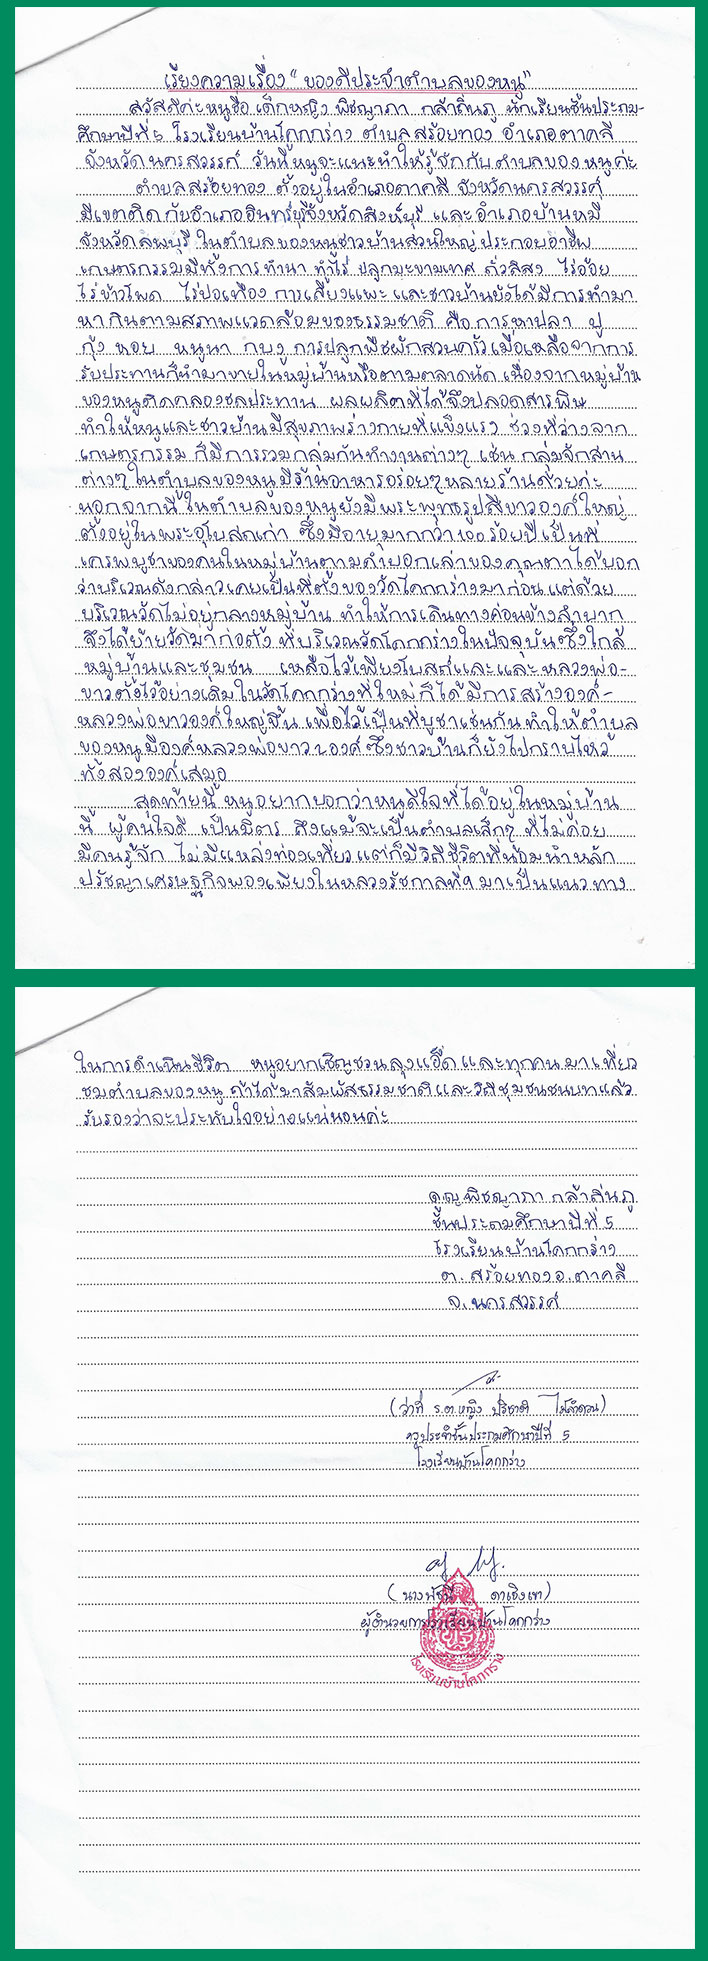 เรียงความเรื่อง "ของดีประจำตำบลของหนู"
สวัสดีค่ะหนูชื่อ เด็กหญิง พิชญาภา กล้าถิ่นภู นักเรียนชั้นประถม-
ศึกษาปีที่ 5 โรงเรียนบ้านโคกกร่าง ตำบลสร้อยทอง อำเภอตาคลี
จังหวัดนครสวรรค์ วันนี้หนูจะแนะนำให้รู้จักกับตำบลของหนูค่ะ
ตำบลสร้อยทอง ตั้งอยู่ในอำเภอตาคลี จังหวัดนครสวรรค์
มีเขตติดกับอำเภออินทร์บุรีจังหวัดสิงห์บุรี และอำเภอบ้านหมี่
จังหวัดลพบุรี ในตำบลของหนูชาวบ้านส่วนใหญ่ประกอบอาชีพ
เกษตรกรรมมีทั้งการทำนา ทำไร่ ปลูกมะขามเทศ ถั่วลิสง ไร่อ้อย
ไร่ข้าวโพด ไร่ปอเทือง การเลี้ยงแพะ และชาวบ้านยังได้มีการทำมา
หากินตามสภาพแวดล้อมของธรรมชาติ คือ การหาปลา ปู
กุ้ง หอย หนูนา กบ งู การปลูกพืชผักสวนครัว เมื่อเหลือจากการ
รับประทานก็นำมาขายในหมู่บ้านหรือตามตลาดนัด เนื่องจากหมู่บ้าน
ของหนูติดคลองชลประทาน ผลผลิตที่ได้จึงปลอดสารพิษ
ทำให้หนูและชาวบ้านมีสุขภาพร่างกายที่แข็งแรง ช่วงที่ว่างจาก
เกษตรกรรม ก็มีการรวมกลุ่มกันทำงานต่างๆ เช่น กลุ่มจักสาน
ต่างๆ ในตำบลของหนูมีร้านอาหารอร่อยๆหลายร้านด้วยค่ะ
นอกจากนี้ ในตำบลของหนูยังมีพระพุทธรูปสีขาวองค์ใหญ่
ตั้งอยู่ในพระอุโบสถเก่า ซึ่งมีอายุมากกว่า 100 ร้อยปี เป็นที่
เคารพบูชาของคนในหมู่บ้านตามคำบอกเล่าของคุณตาได้บอก
ว่าบริเวณดังกล่าวเคยเป็นที่ตั้งของวัดโคกกร่างมาก่อน แต่ด้วย
บริเวณวัดไม่อยู่กลางหมู่บ้าน ทำให้การเดินทางค่อนข้างลำบาก
จึงได้ย้ายวัดมาก่อตั้ง ที่บริเวณวัดโคกกร่างในปัจจุบันซึ่งใกล้
หมู่บ้านและชุมชน เหลือไว้เพียงโบสถ์และและหลวงพ่อ-
ขาวตั้งไว้อย่างเดิม ในวัดโคกกร่างที่ใหม่ก็ได้มีการสร้างองค์-
หลวงพ่อขาวองค์ใหญ่ขึ้น เพื่อไว้เป็นที่บูชาเช่นกัน ทำให้ตำบล
ของหนูมีองค์หลวงพ่อขาว 2 องค์ ซึ่งชาวบ้านก็ยังไปกราบไหว้
ทั้งสององค์เสมอ
สุดท้ายนี้ หนูอยากบอกว่าหนูดีใจที่ได้อยู่ในหมู่บ้าน
นี้ ผู้คนใจดี เป็นมิตร ถึงแม้จะเป็นตำบลเล็กๆ ที่ไม่ค่อย
มีคนรู้จัก ไม่มีแหล่งท่องเที่ยว แต่ก็มีวิถีชีวิตที่น้อมนำหลัก
ปรัชญาเศรษฐกิจพอเพียงในหลวงรัชกาลที่ 9 มาเป็นแนวทาง
ในการดำเนินชีวิต หนูอยากเชิญชวนลุงแอ๊ด และทุกคนมาเที่ยว
ชมตำบลของหนู ถ้าได้มาสัมผัสธรรมชาติและวิถีชุมชนชนบทแล้ว
รับรองว่าจะประทับใจอย่างแน่นอนค่ะ
ด.ญ.พิชญาภา กล้าถิ่นภู
ชั้นประถมศึกษาปีที่ 5
โรงเรียนบ้านโคกกร่าง
ต. สร้อยทอง อ. ตาคลี
จ. นครสวรรค์
(ว่าที่ ร.ต.หญิง ปริชาติ
ครูประจำชั้นประถมศึกษาปีที่ 5
โรงเรียนบ้านโคกกร่าง
(นางพัชนี
ผู้อำนวยการโรงเรียนบ้านโคกกร่าง
โรงเรียนบ้านโคกกร่าง